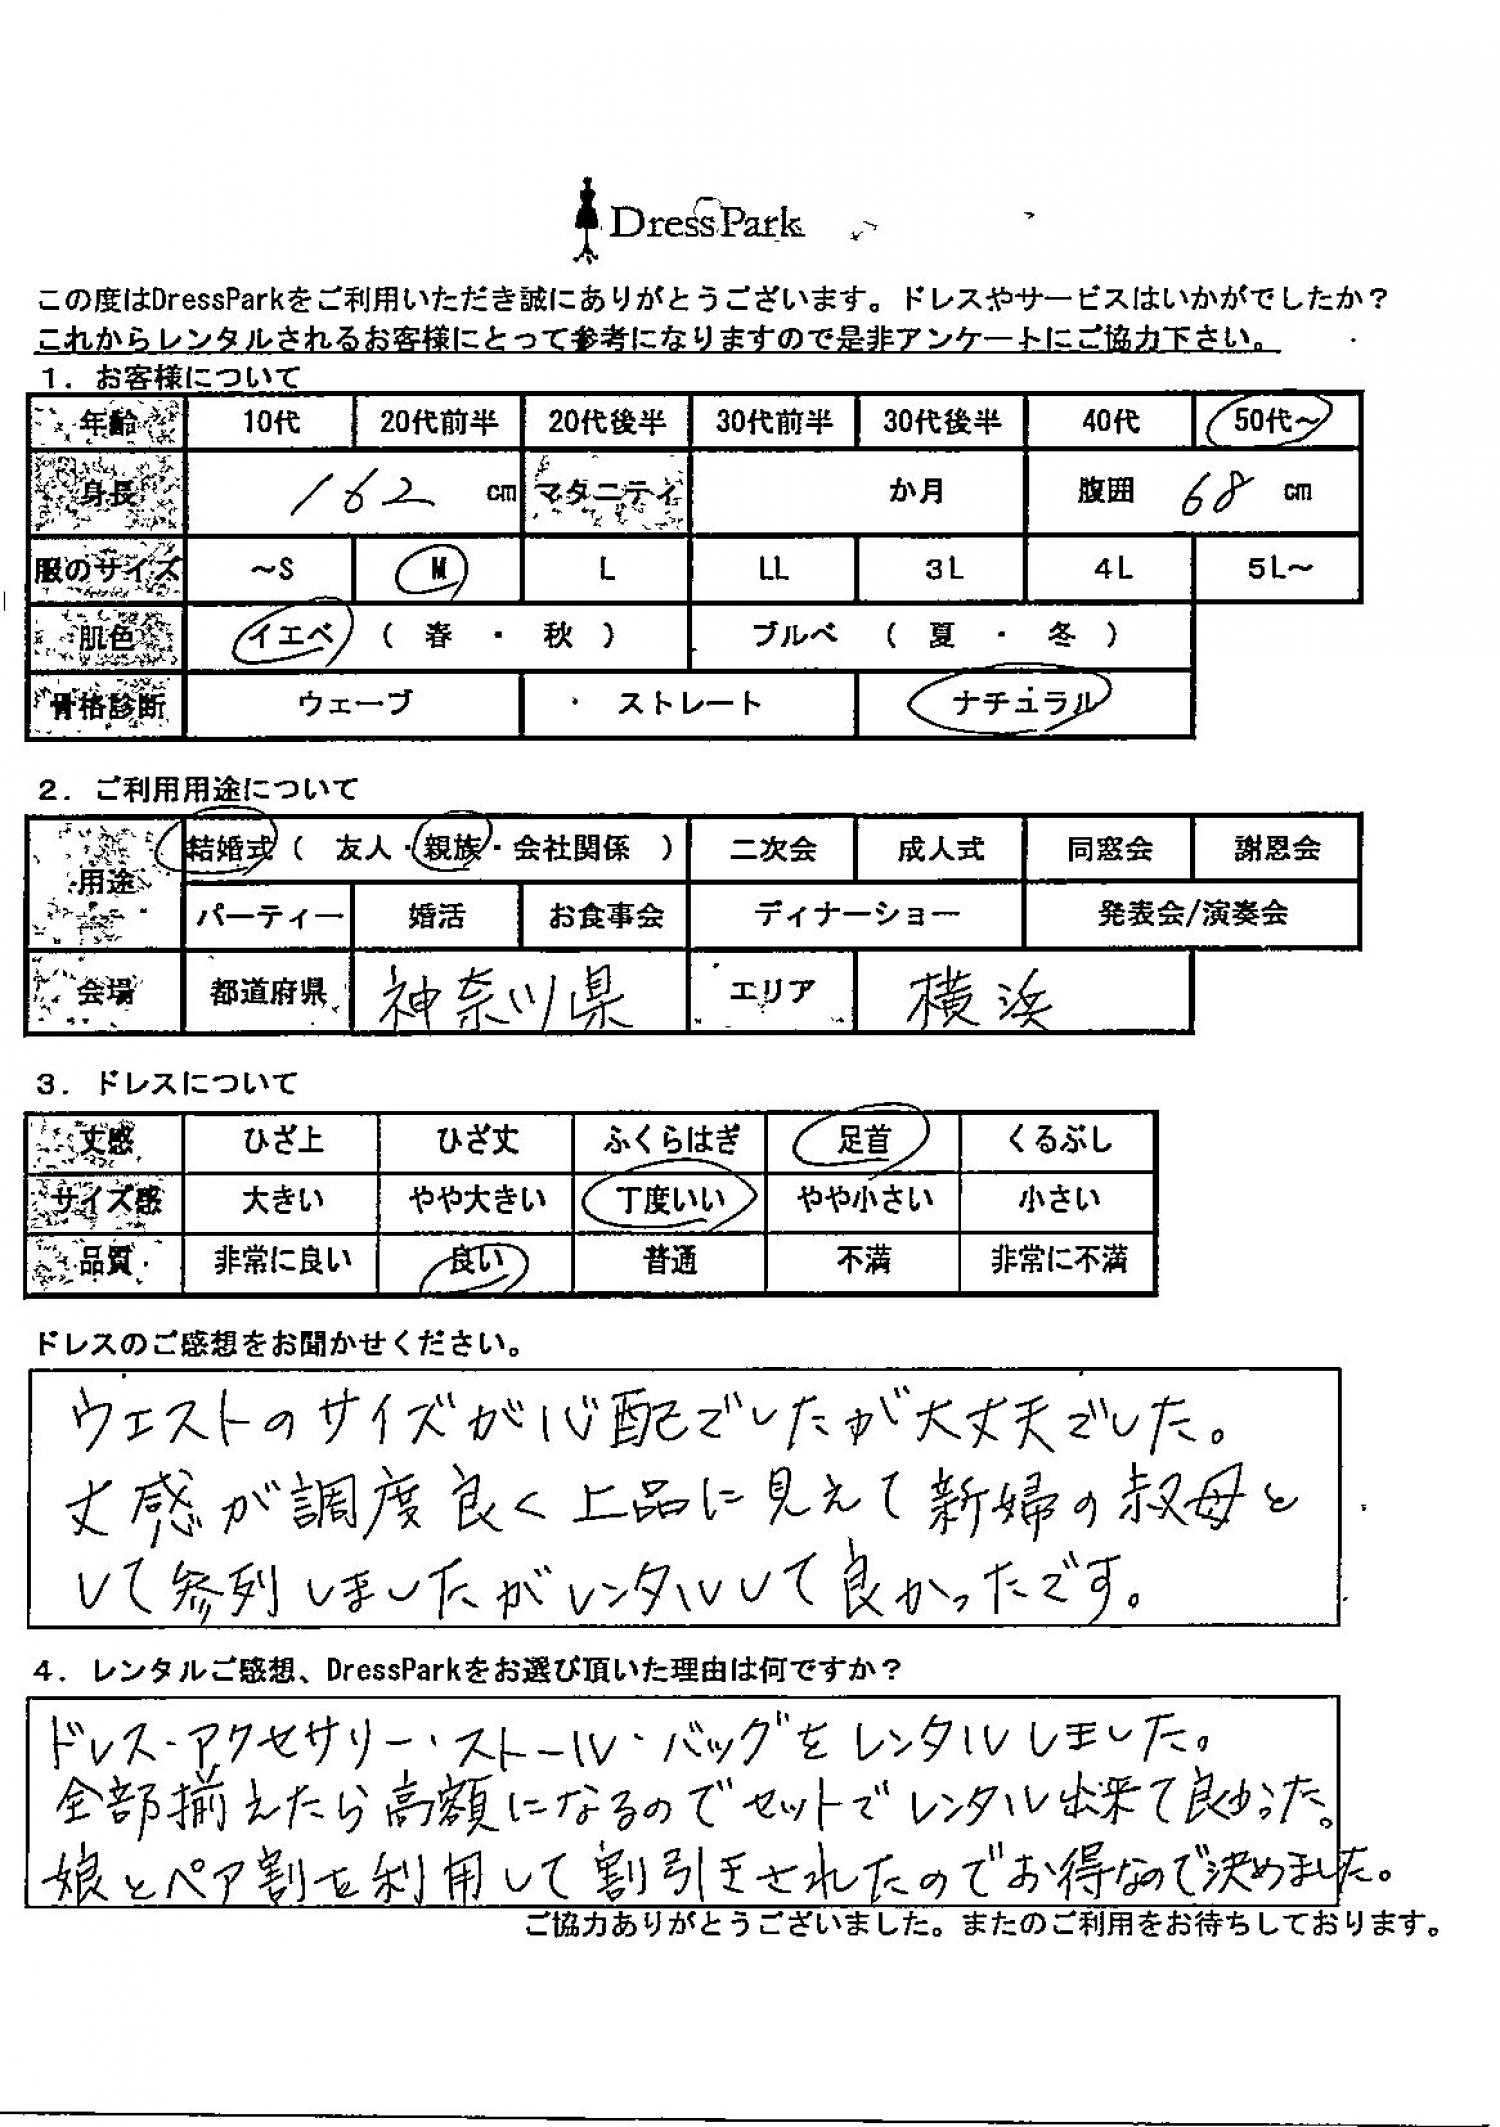 DressPark
この度はDressParkをご利用いただき誠にありがとうございます。ドレスやサービスはいかがでしたか？
これからレンタルされるお客様にとって参考になりますので是非アンケートにご協力下さい。
１．お客様について
年齢 10代 20代前半 20代後半 30代前半 30代後半 40代 50代～
身長 162 cm マタニティ か月 腹囲 68 cm
服のサイズ ～S M L LL 3L 4L 5L～
肌色 イエベ （ 春 ・ 秋 ） ブルベ （ 夏 ・ 冬 ）
骨格診断 ウェーブ ストレート ナチュラル
２．ご利用用途について
用途 結婚式（ 友人・親族・会社関係 ） 二次会 成人式 同窓会 謝恩会
パーティー 婚活 お食事会 ディナーショー 発表会/演奏会
会場 都道府県 神奈川県 エリア 横浜
３．ドレスについて
丈感 ひざ上 ひざ丈 ふくらはぎ 足首 くるぶし
サイズ感 大きい やや大きい 丁度いい やや小さい 小さい
品質 非常に良い 良い 普通 不満 非常に不満
ドレスのご感想をお聞かせください。
ウエストのサイズが心配でしたが大丈夫でした。
丈感が調度良く上品に見えて新婦の叔母と
して参列しましたがレンタルして良かったです。
４．レンタルご感想、DressParkをお選び頂いた理由は何ですか？
ドレス・アクセサリー・ストール・バッグをレンタルしました。
全部揃えたら高額になるのでセットでレンタル出来て良かった。
娘とペア割を利用して割引きされたのでお得なので決めました。
ご協力ありがとうございました。またのご利用をお待ちしております。